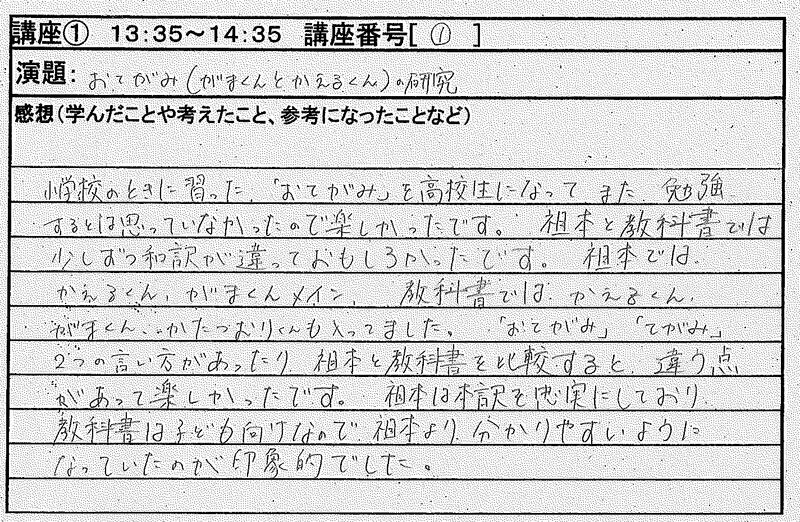 講座① 13:35～14:35 講座番号[ ① ]
演題: おてがみ(がまくんとかえるくん)の研究
感想(学んだことや考えたこと、参考になったことなど)
小学校のときに習った、「おてがみ」を高校生になってまた勉強
するとは思っていなかったので楽しかったです。祖本と教科書では
少しずつ和訳が違っておもしろかったです。祖本では、
かえるくん、がまくんメイン、教科書では、かえるくん、
がまくん、かたつむりくんも入ってました。「おてがみ」「てがみ」
2つの言い方があったり、祖本と教科書を比較すると、違う点
があって楽しかったです。祖本は本訳を忠実にしており、
教科書は子ども向けなので、祖本より、分かりやすいように
なっていたのが印象的でした。